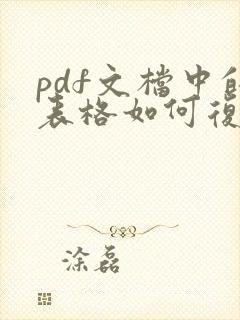 pdf文檔中的
表格如何復
涂磊